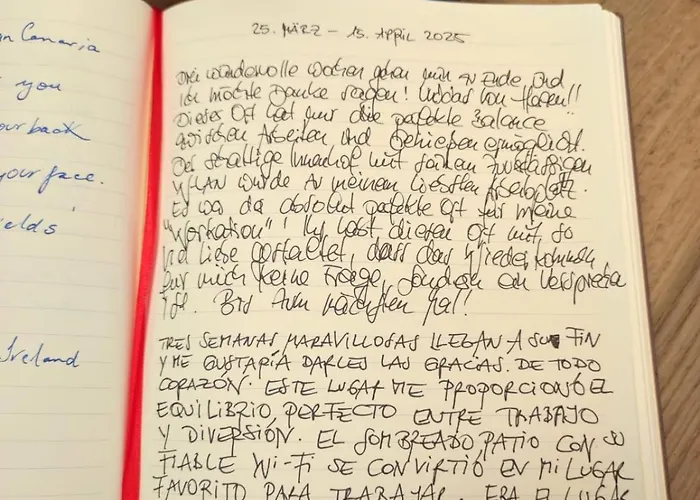 an Canaria
you
our back
your face.
ields
Ireland
25. MÄRZ – 15. APRIL 2025
Drei wundervolle Wochen gehen nun zu Ende und
ich möchte Danke sagen! Und das von Herzen!!
Dieser Ort hat mir die perfekte Balance
zwischen Arbeiten und Genießen ermöglicht.
Der schattige Innenhof mit seinem zuverlässigen
WLAN wurde zu meinem liebsten Arbeitsplatz.
Es war der absolut perfekte Ort für meine
"Workation"! Ihr habt diesen Ort mit so
viel Liebe gestaltet, dass das Wiederkommen
für mich keine Frage, sondern ein Versprechen
ist. Bis zum nächsten Mal!
TRES SEMANAS MARAVILLOSAS LLEGAN A SU FIN
Y ME GUSTARÍA DARLES LAS GRACIAS. DE TODO
CORAZÓN. ESTE LUGAR ME PROPORCIONÓ EL
EQUILIBRIO PERFECTO ENTRE TRABAJO
Y DIVERSIÓN. EL SOMBREADO PATIO CON SU
FIABLE WI-FI SE CONVIRTIÓ EN MI LUGAR
FAVORITO PARA TRABAJAR. ERA EL LUGAR